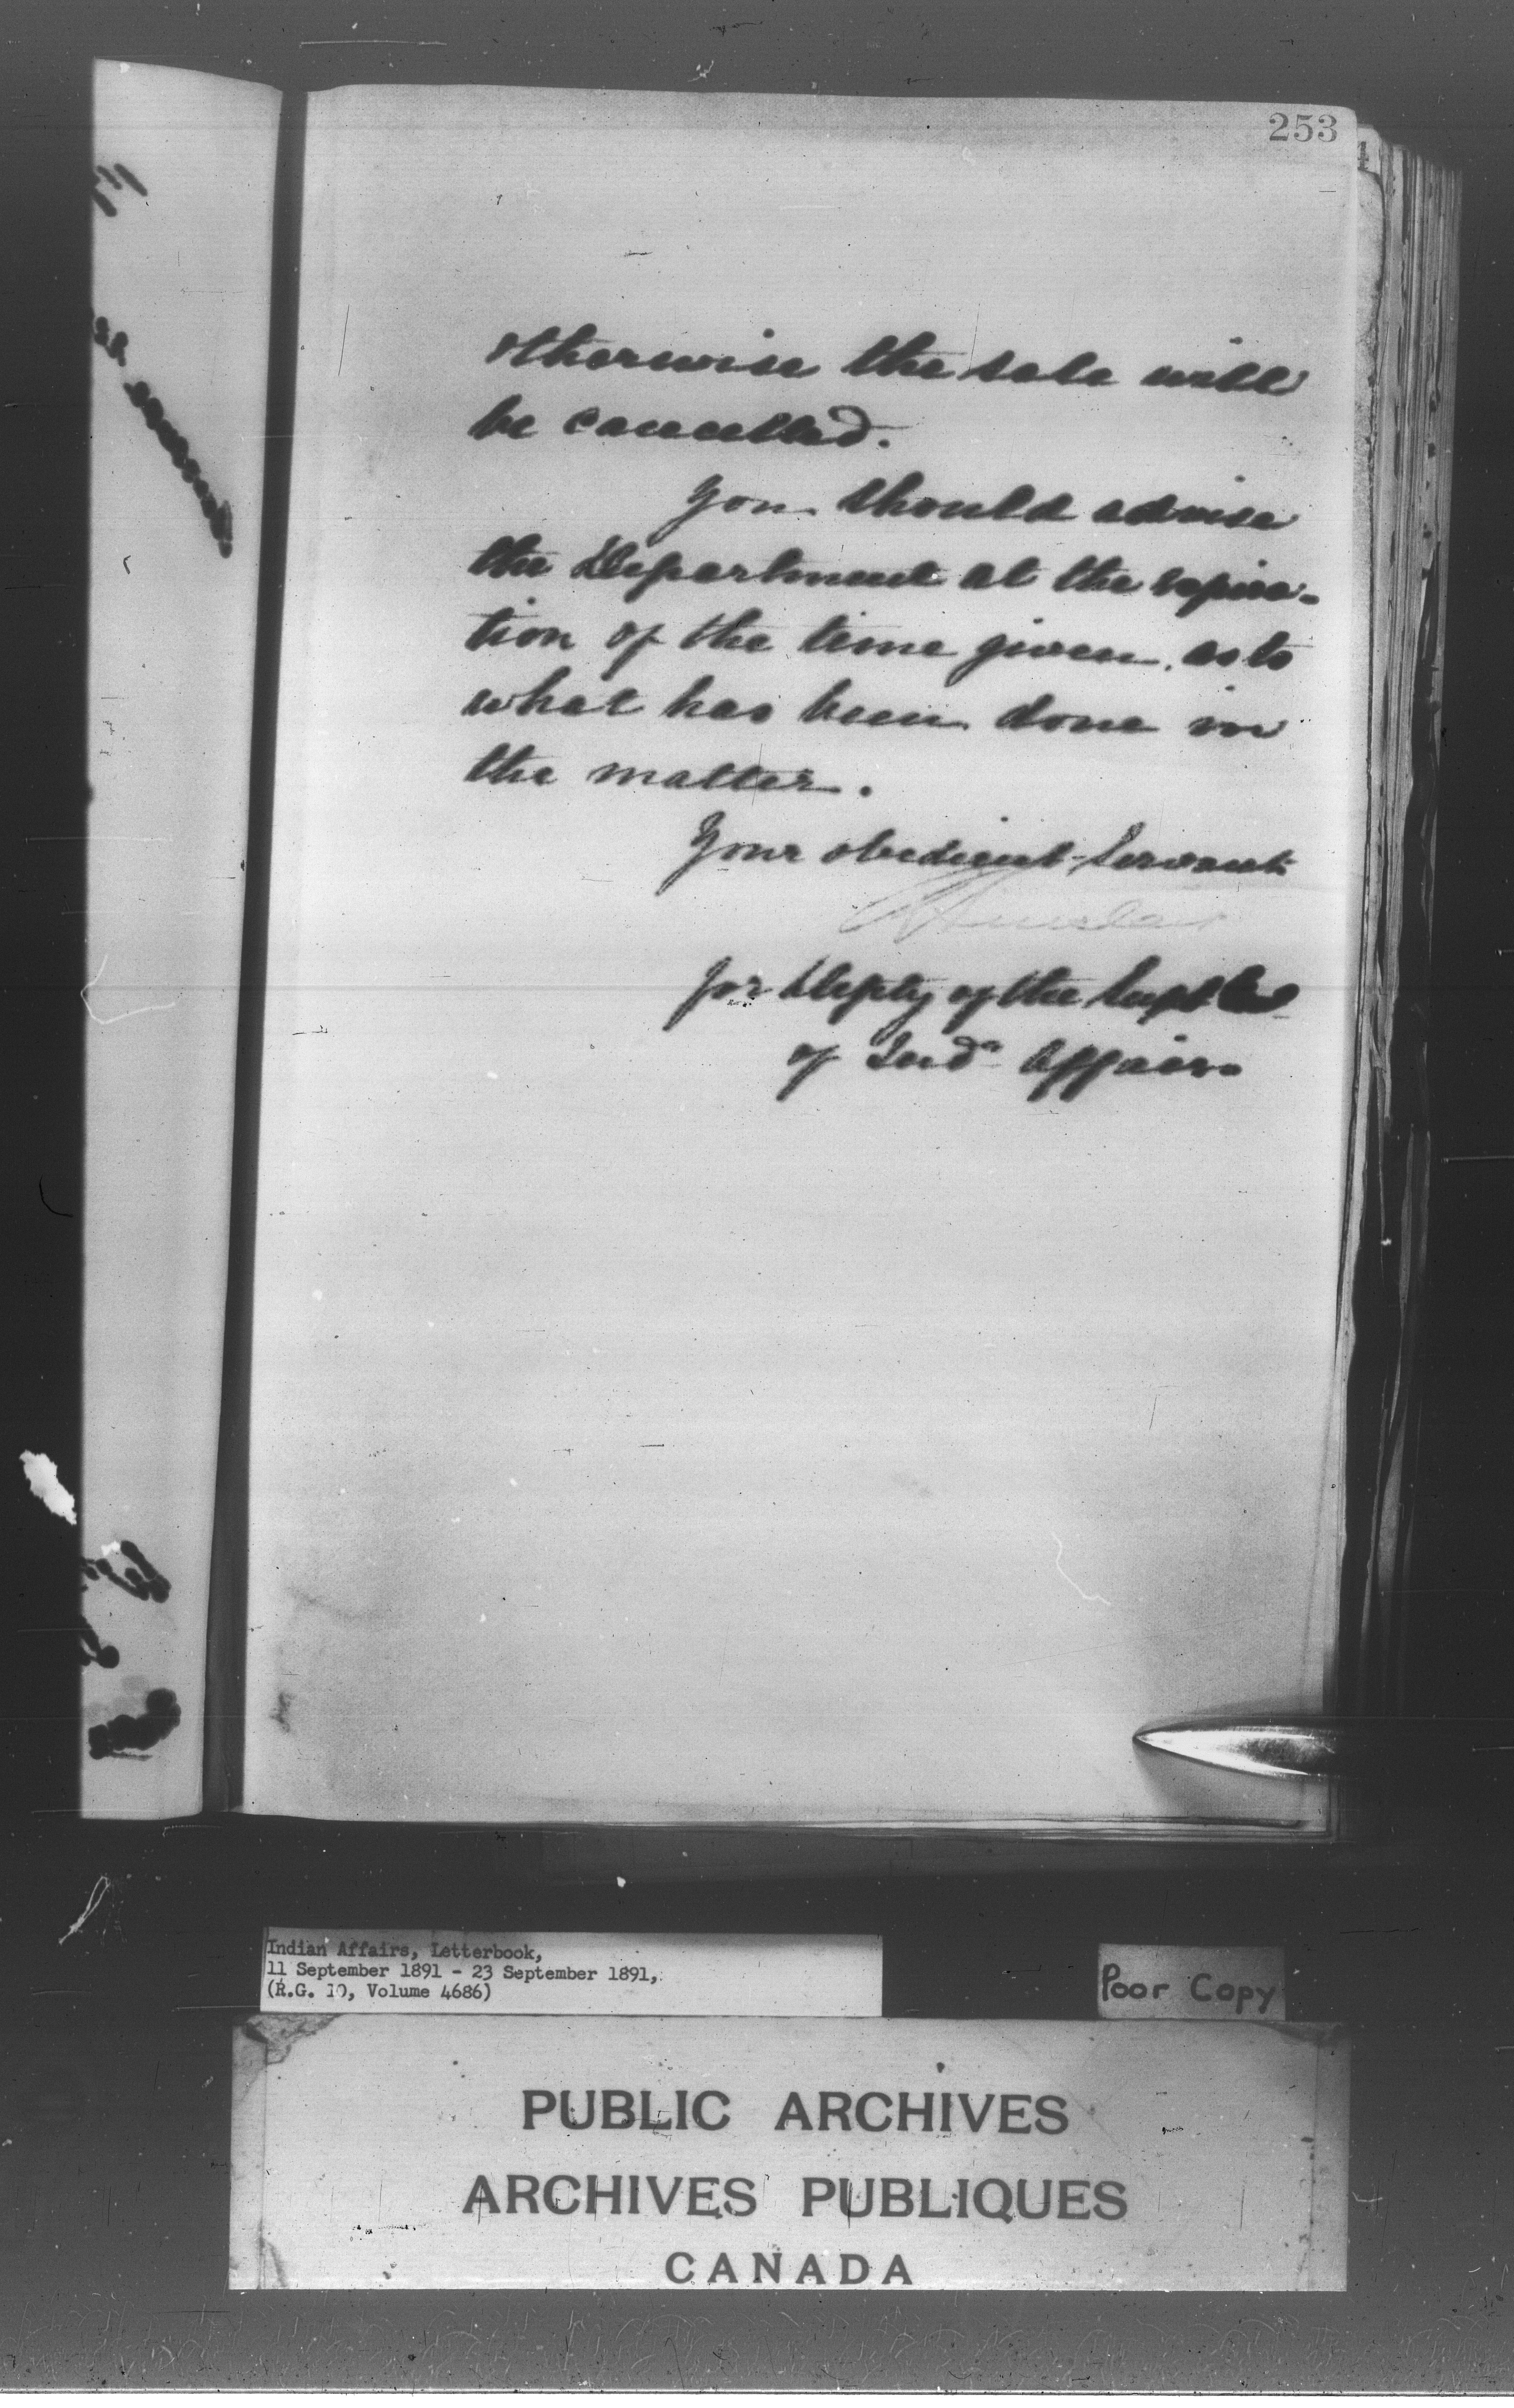 253
otherwise the sale will
be cancelled.
You should advise
the Department at the expira-
tion of the time given, as to
what has been done in
the matter.
Your obedient Servant
for Depty of the Supt Genl
of Indn Affairs
Indian Affairs, Letterbook,
11 September 1891 - 23 September 1891,
(R.G. 10, Volume 4686)
Poor Copy
PUBLIC ARCHIVES
ARCHIVES PUBLIQUES
CANADA